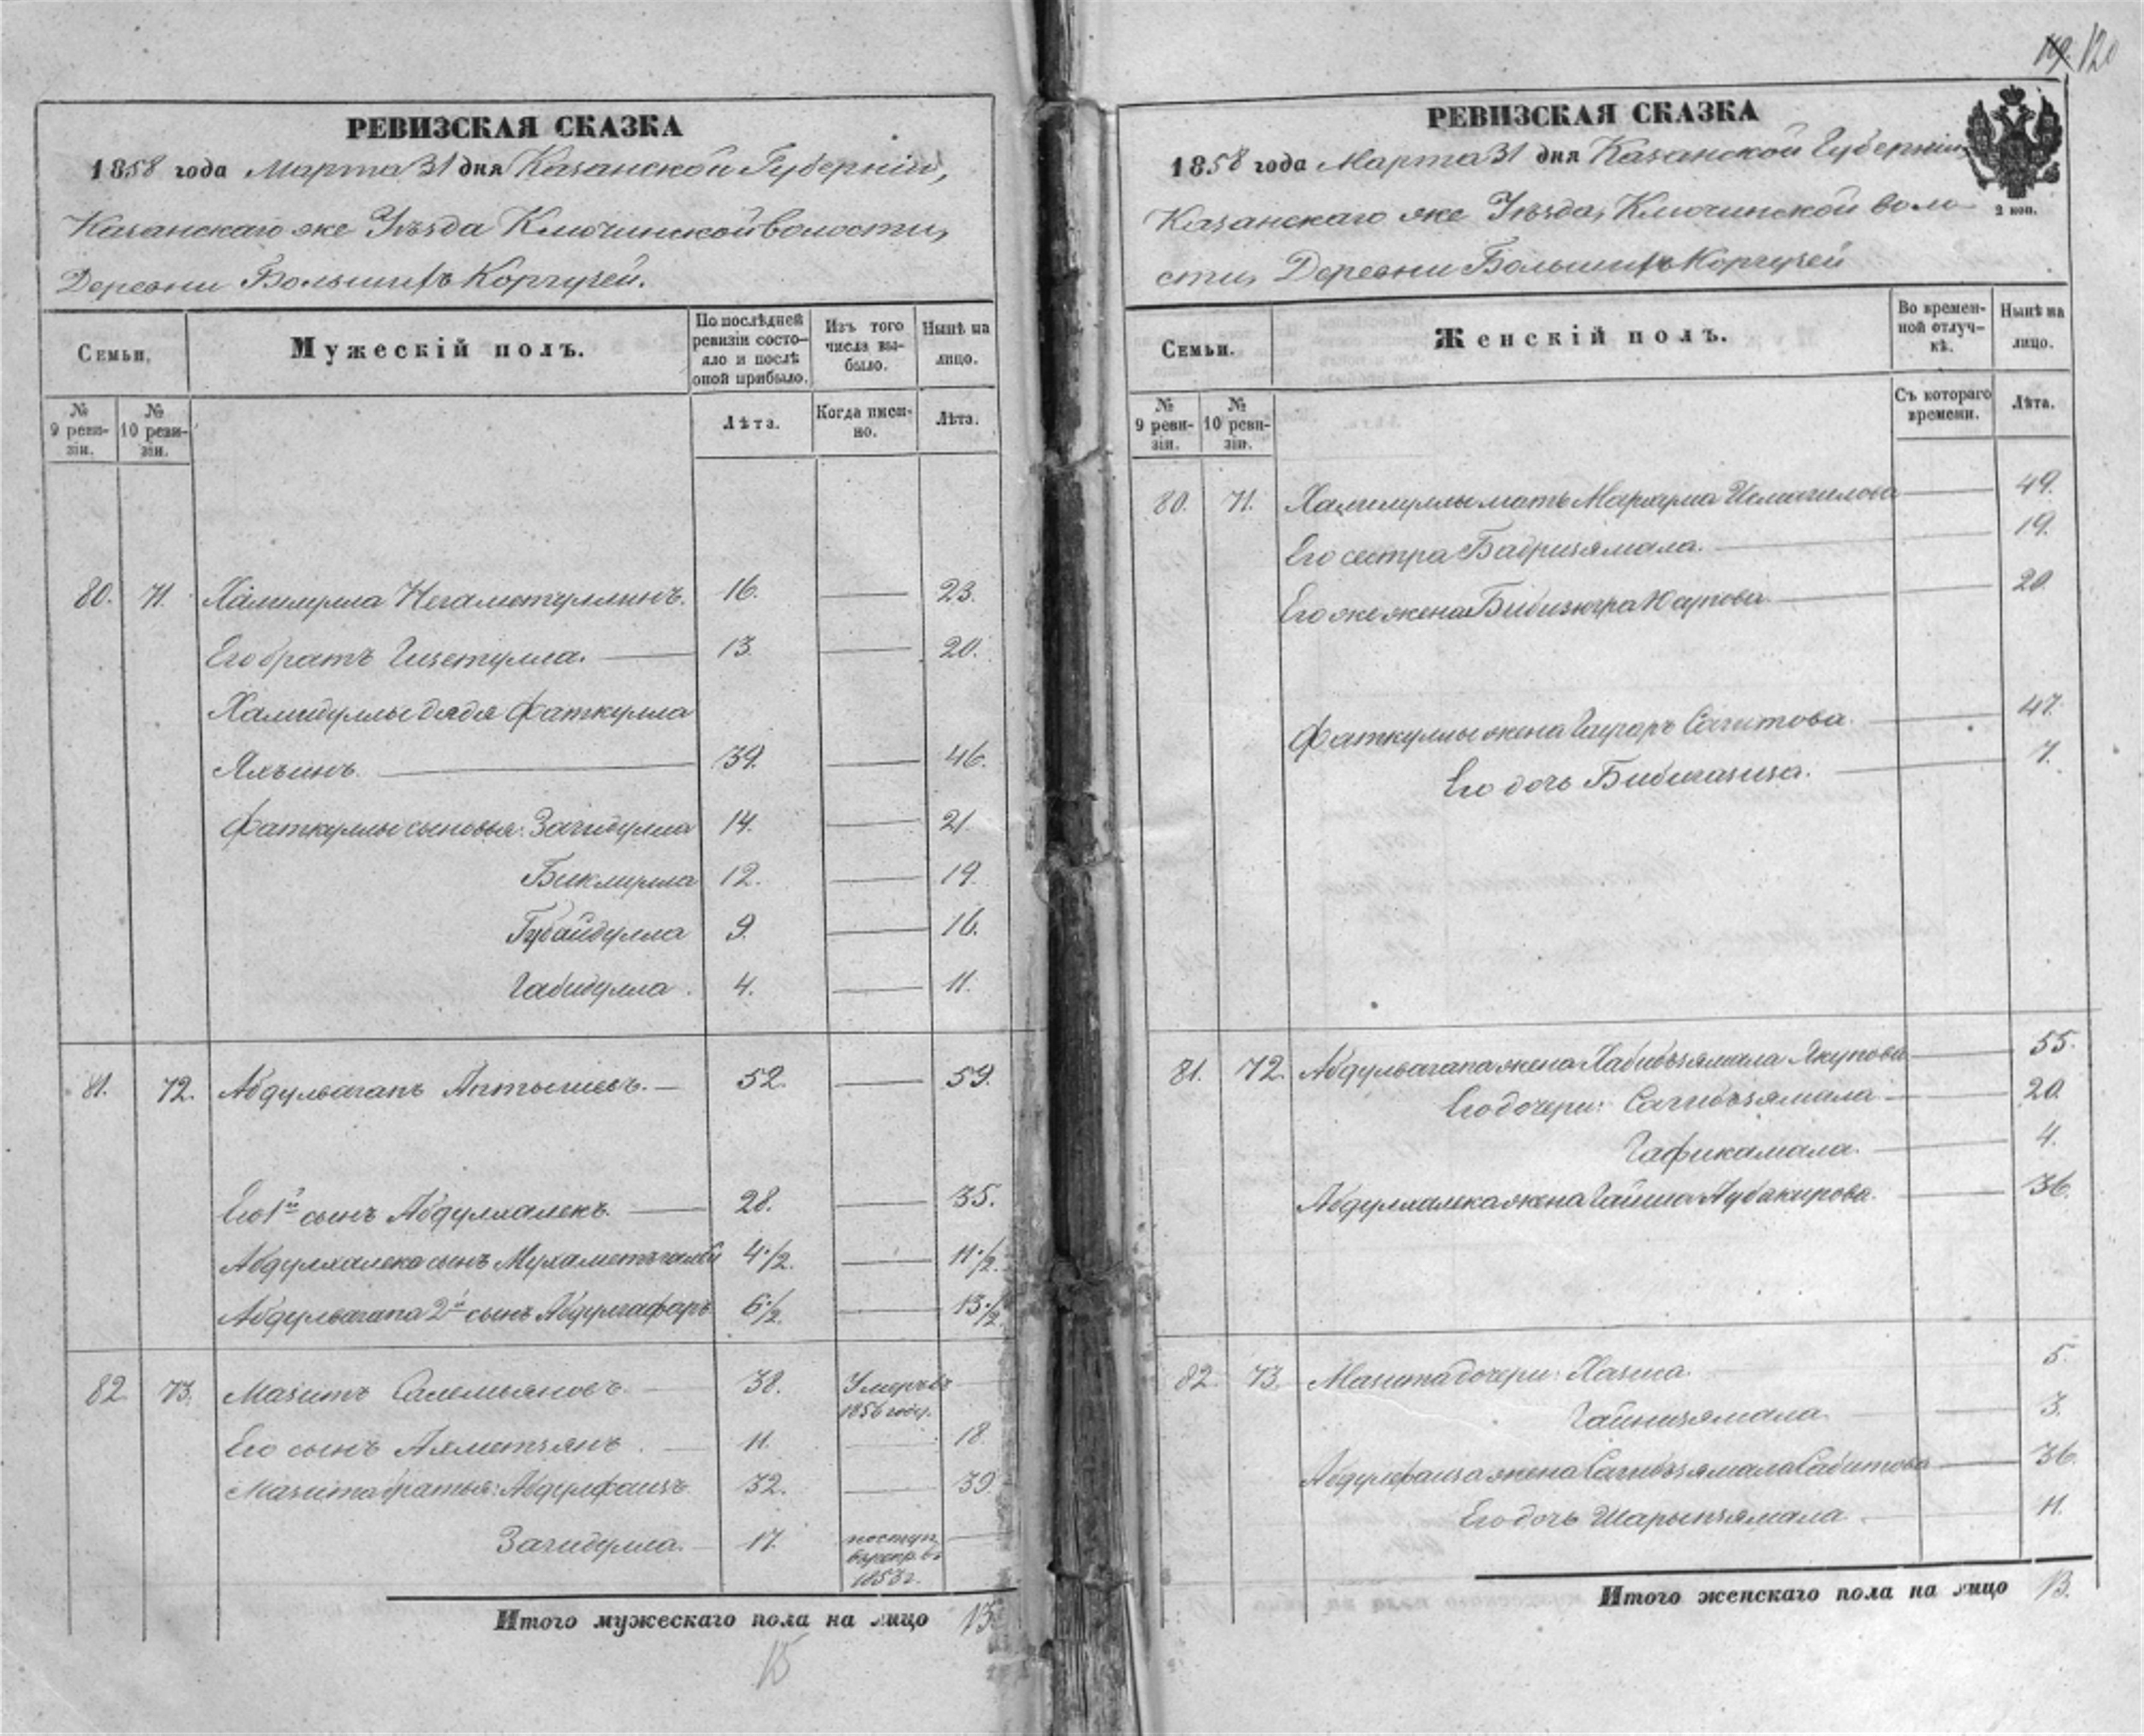 119. 120
РЕВИЗСКАЯ СКАЗКА
1858 года Марта 31 дня Казанской Губерніи,
Казанскаго же Уѣзда Ключинской волости,
Деревни Большихъ Коргузей.
Семьи.
Мужескій полъ.
По послѣдней ревизіи состояло и послѣ оной прибыло.
Изъ того числа выбыло.
Нынѣ на лицо.
№ 9 ревизіи.
№ 10 ревизіи.
Лѣта.
Когда именно.
Лѣта.
80. 71. Халиулла Негаметуллинъ. 16. — 23.
Его братъ Гизетулла. — 13. — 20.
Хамидуллы дядя Фаткулла
Яхъинъ. — 39. — 46.
Фаткуллы сыновья: Загидулла 14. — 21.
Бикмулла 12. — 19.
Губайдулла 9. — 16.
Габидулла. 4. — 11.
81. 72. Абдулвагапъ Аптышевъ. — 52. — 59.
Его 1й сынъ Абдулхалекъ. — 28. — 35.
Абдулхалека сынъ Мухаметъгалей 4 1/2. — 11 1/2.
Абдулвагапа 2й сынъ Абдулгафаръ 6 1/2. — 13 1/2.
82. 73. Мазитъ Салемьяновъ. — 38. Умеръ въ 1856 году. —
Его сынъ Ахметзянъ. — 11. — 18.
Мазита братья: Абдулфаизъ. 32. — 39
Загидулла. — 17. поступ. в рекр. въ 1853 г. —
Итого мужескаго пола на лицо 13.
13
РЕВИЗСКАЯ СКАЗКА
1858 года Марта 31 дня Казанской Губерніи,
Казанскаго же Уѣзда, Ключинской воло-
сти, Деревни Большихъ Коргузей
2 коп.
Семьи.
Женскій полъ.
Во временной отлучкѣ.
Нынѣ на лицо.
№ 9 ревизіи.
№ 10 ревизіи.
Съ котораго времени.
Лѣта.
80. 71. Халиуллы мать Мархума Исмагилова — 49.
Его сестра Бадризямала. — 19.
Его же жена Бибизюгра Юсупова — 20.
Фаткуллы жена Гаугаръ Сагитова. — 47.
Его дочь Бибигазиза. — 7.
81. 72. Абдулвагапа жена Хабибзямала Якупова — 55.
Его дочери: Сагибзямала — 20.
Гафикамала. — 4.
Абдулхалека жена Гайша Аубакирова. — 36.
82. 73. Мазита дочери: Назиса. 5.
Гайнизямала. — 3.
Абдулфаиза жена Сагибзямала Сабитова — 36.
Его дочь Шарыпзямала. — 11.
Итого женскаго пола на лицо 13.